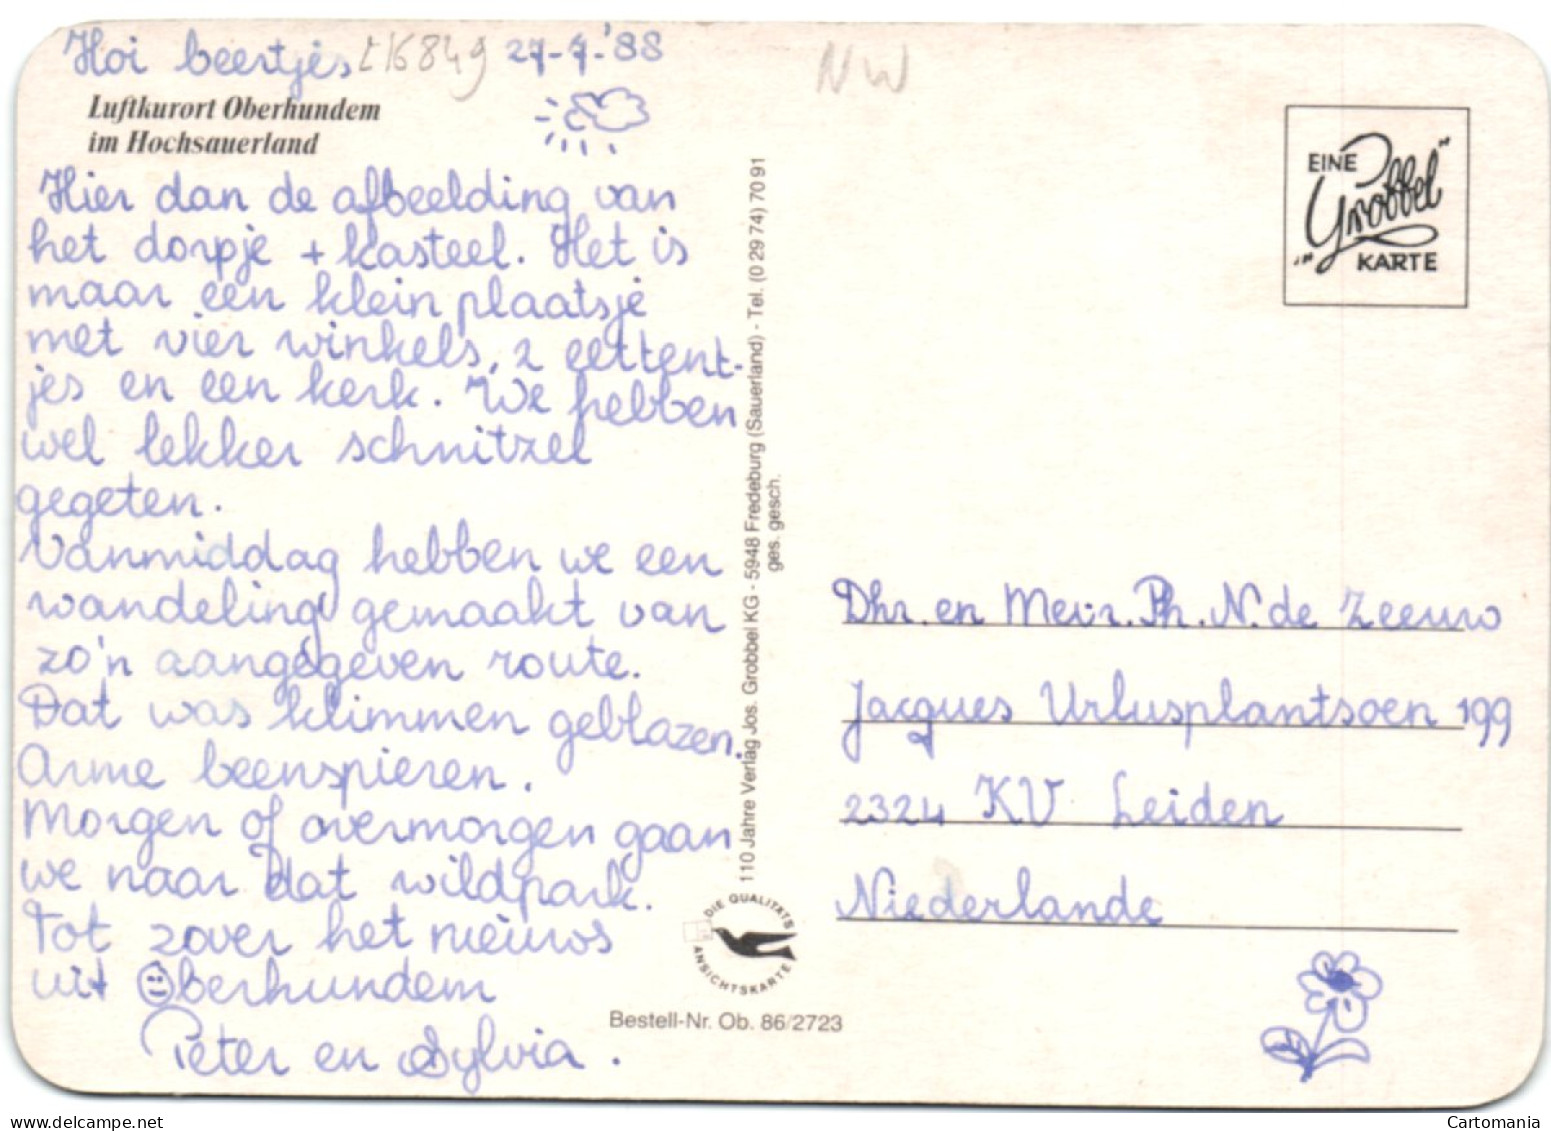 Hoi beertjes LK849 27-7-'88
NW
Luftkurort Oberhundem
im Hochsauerland
Hier dan de afbeelding van
het dorpje + kasteel. Het is
maar een klein plaatsje
met vier winkels, 2 eettent-
jes en een kerk. We hebben
wel lekker schnitzel
gegeten.
Vanmiddag hebben we een
wandeling gemaakt van
zo'n aangegeven route.
Dat was klimmen geblazen.
Arme beenspieren.
Morgen of overmorgen gaan
we naar dat wildpark.
Tot zover het nieuws
uit Oberhundem
Peter en Sylvia.
110 Jahre Verlag Jos. Grobbel KG - 5948 Fredeburg (Sauerland) - Tel. (0 29 74) 70 91
ges. gesch.
DIE QUALITÄTS
ANSICHTSKARTE
Bestell-Nr. Ob. 86/2723
EINE
"Grobbel"
KARTE
Dhr. en Mevr. Ph. N. de Zeeuw
Jacques Urlusplantsoen 199
2324 KV Leiden
Niederlande
Cartomania
www.delcampe.net